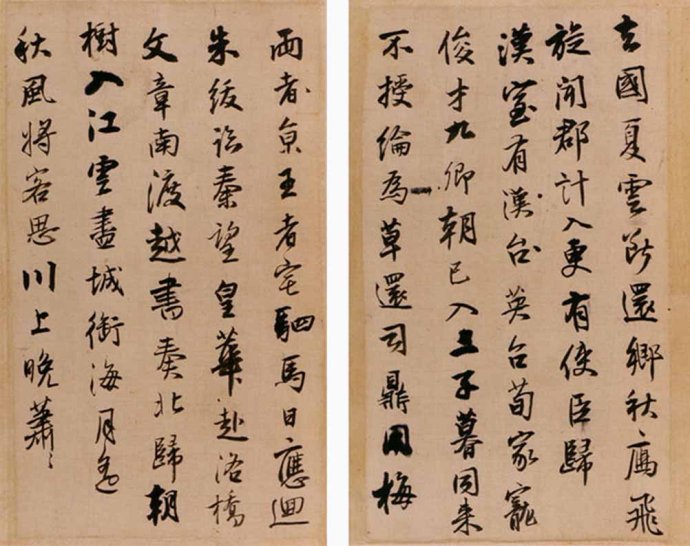 去國夏雲斷還鄉秋鴈飛
旋聞郡計入更有使臣歸
漢室有漢台英台荀家寵
俊才九卿朝已入三子暮同来
不授綸為草還司鼎用梅
両者京王者宅駟馬日應迴
朱紱詣秦望皇華赴洛橋
文章南渡越書奏北歸朝
樹入江雲盡城銜海月遙
秋風將客思川上晚蕭〻